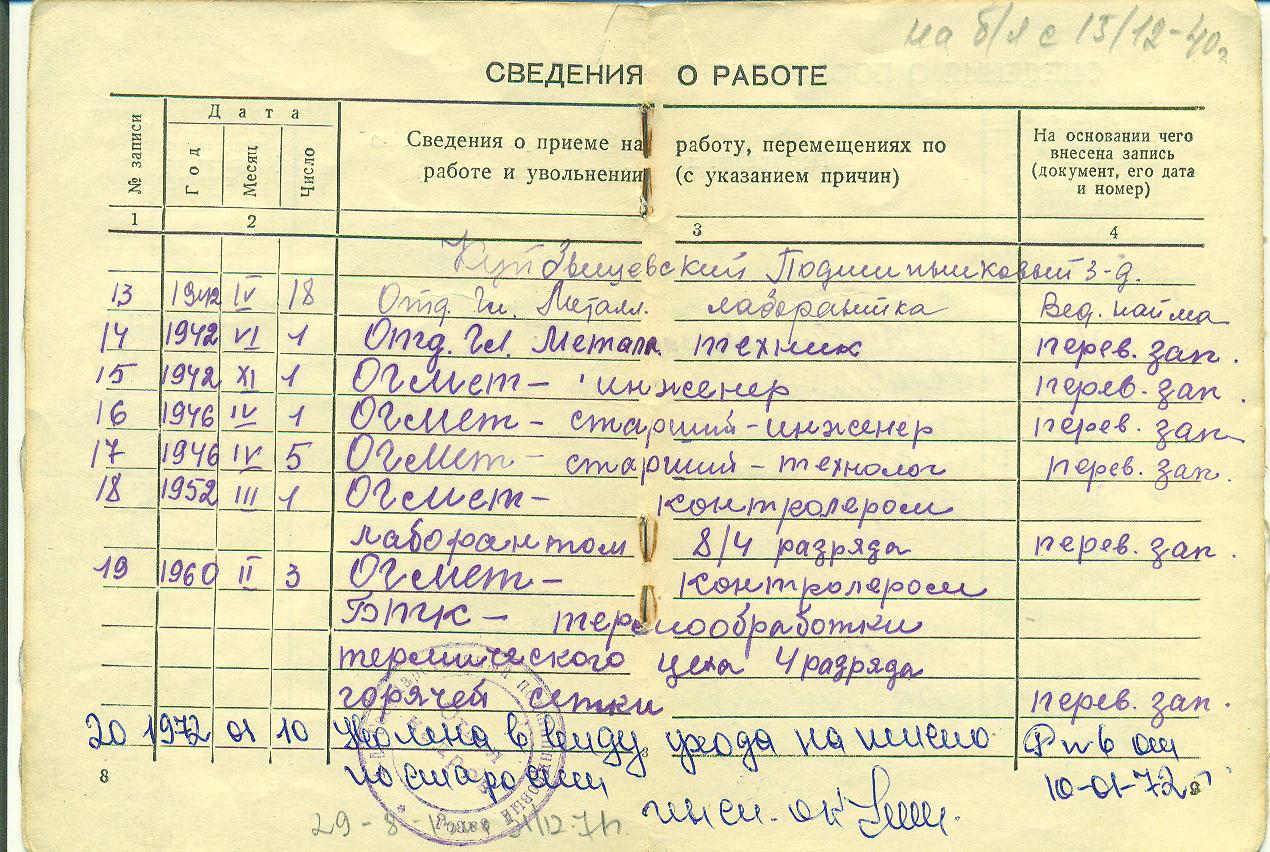 на б/л с 15/12-40г
СВЕДЕНИЯ О РАБОТЕ
№ записи
Дата
Год
Месяц
Число
Сведения о приеме на работу, перемещениях по
работе и увольнении (с указанием причин)
На основании чего
внесена запись
(документ, его дата
и номер)
1 2 3 4
Куйбышевский Подшипниковый з-д.
13 1942 IV 18 Отд. Гл. Металл. лаборантка Вед. найма
14 1942 VI 1 Отд. Гл. Металл техник перев. зап.
15 1942 XI 1 ОГмет - инженер перев. зап.
16 1946 IV 1 ОГмет - старший - инженер перев. зап.
17 1946 IV 5 ОГмет - старший - технолог перев. зап.
18 1952 III 1 ОГмет - контролером
лаборантом 8/4 разряда перев. зап.
19 1960 II 3 ОГмет - контролером
БТК - термообработки
термического цеха 4 разряда
горячей сетки перев. зап.
20 1972 01 10 уволена в виду ухода на пенсию
по старости 10-01-72
инсп. ОК
8
9